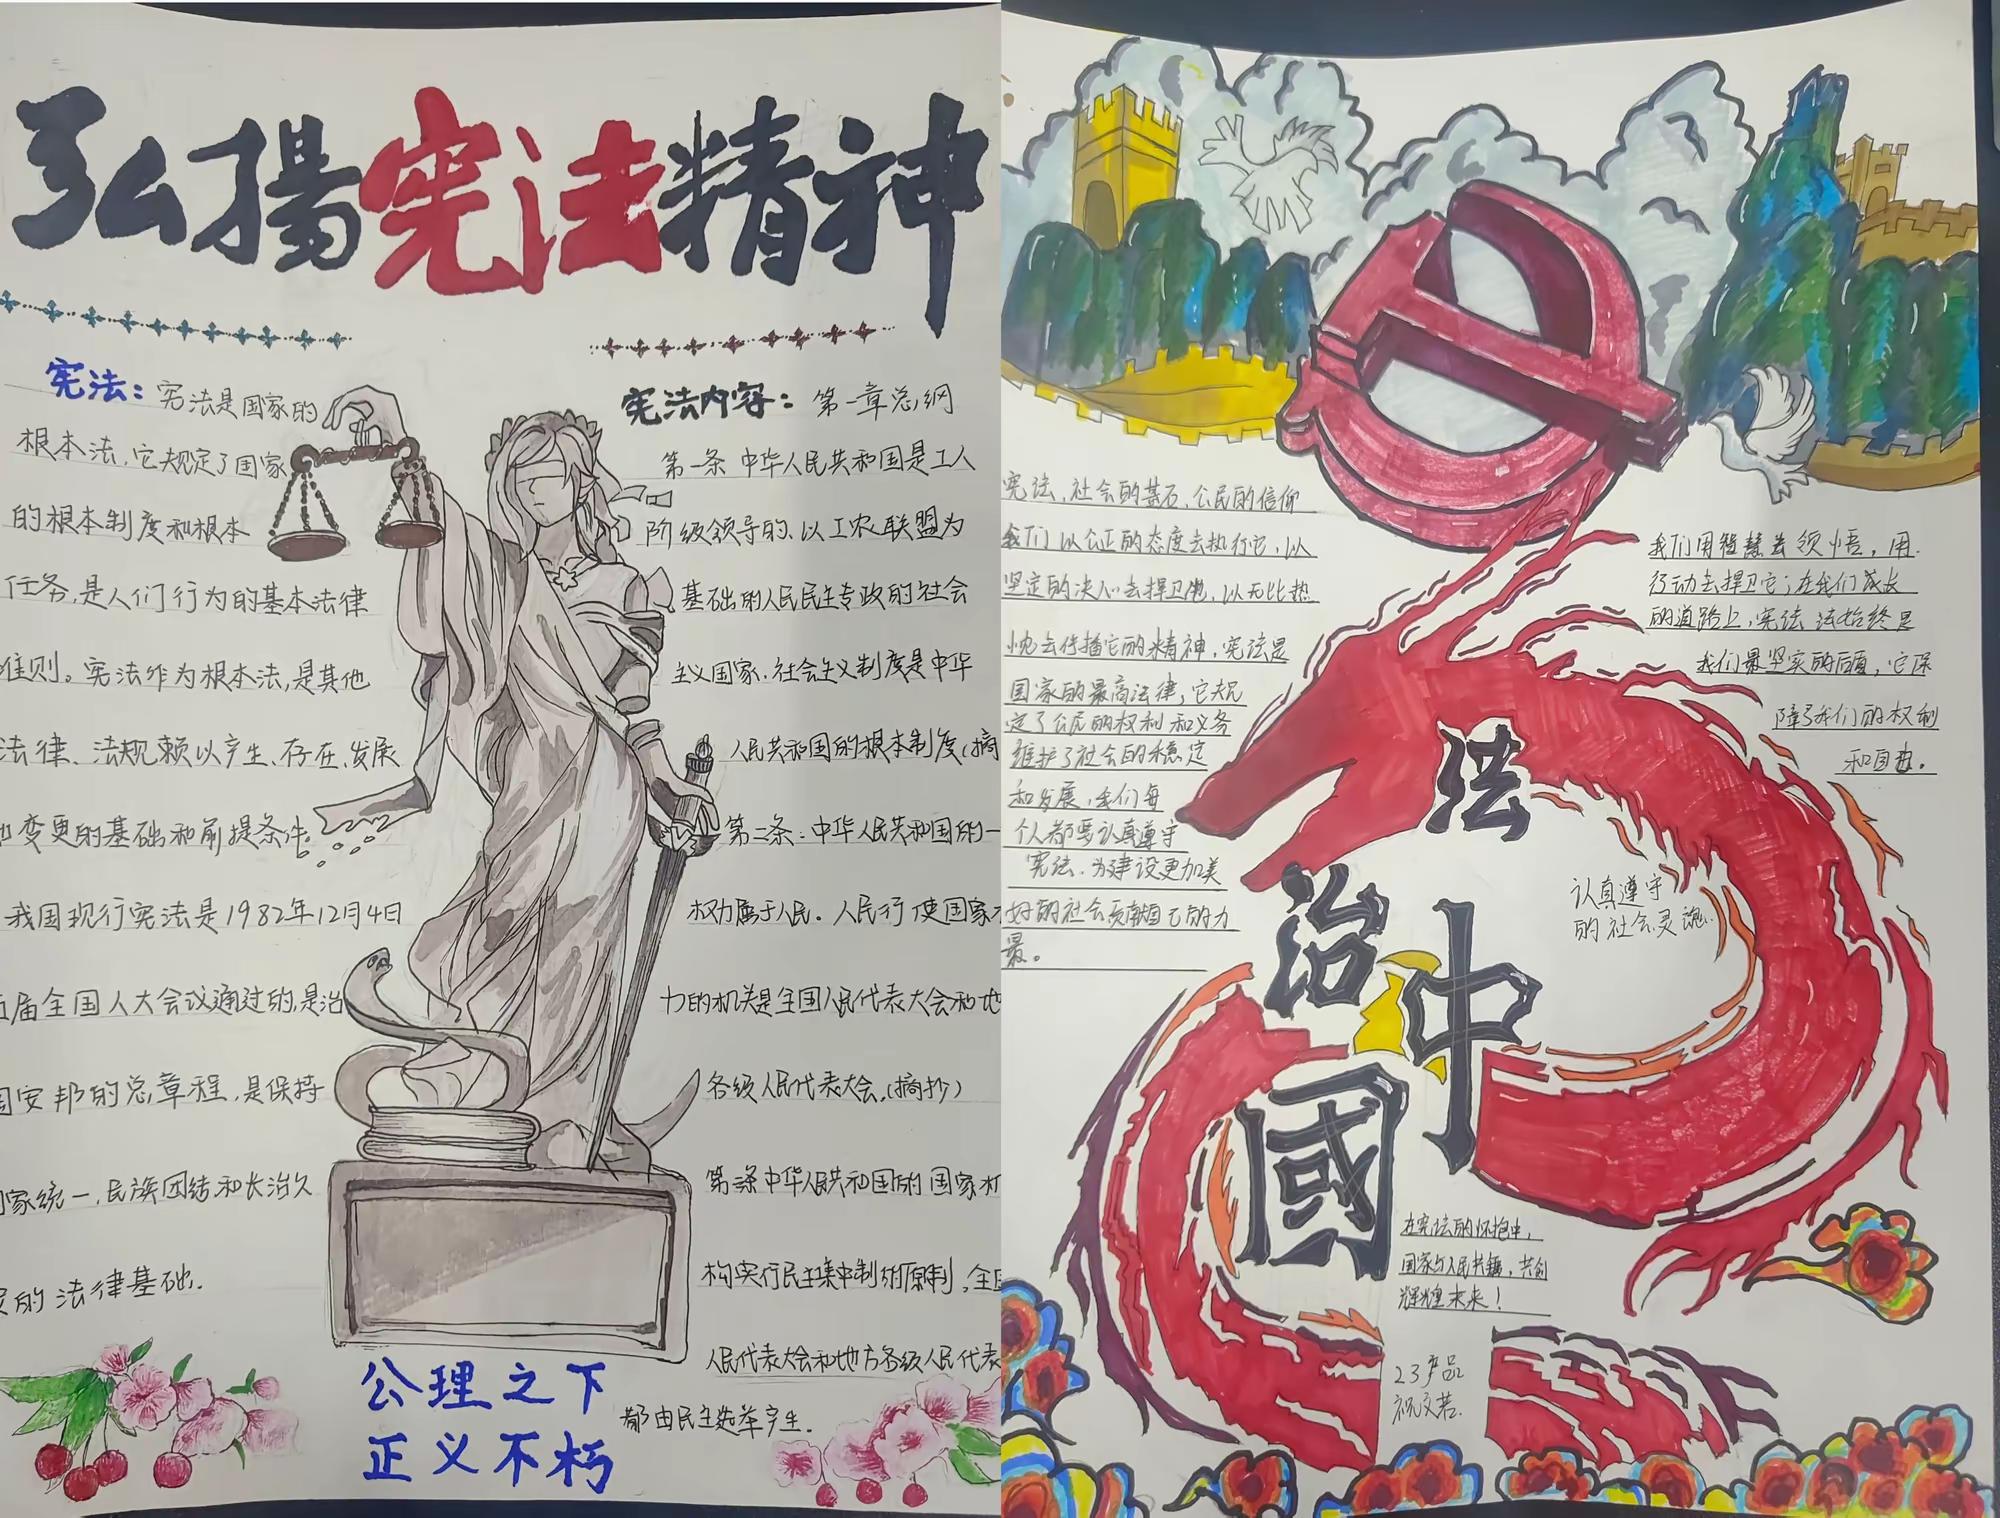 弘揚宪法精神
宪法：宪法是国家的
根本法，它规定了国家
的根本制度和根本
任务，是人们行为的基本法律
准则。宪法作为根本法，是其他
法律、法规赖以产生、存在、发展
变更的基础和前提条件。
我国现行宪法是1982年12月4日
届全国人大会议通过的，是治
国安邦的总章程，是保持
家统一，民族团结和长治久
的法律基础.
宪法内容：第一章总纲
第一条 中华人民共和国是工人
阶级领导的、以工农联盟为
基础的人民民主专政的社会
主义国家.社会主义制度是中华
人民共和国的根本制度(摘
第二条：中华人民共和国的一
权力属于人民。人民行使国家
力的机关是全国人民代表大会和地
各级人民代表大会.(摘抄)
第三条中华人民共和国的国家机
构实行民主集中制的原则，全国
人民代表大会和地方各级人民代表
都由民主选举产生.
公理之下
正义不朽
宪法，社会的基石，公民的信仰
我们以公正的态度去执行它，以
坚定的决心去捍卫它，以无比热
忱去传播它的精神，宪法是
国家的最高法律，它规
定了公民的权利和义务
维护了社会的稳定
和发展，我们每
个人都要认真遵守
宪法.为建设更加美
好的社会贡献自己的力
量。
我们用智慧去领悟，用
行动去捍卫它；在我们成长
的道路上，宪法 法始终是
我们最坚实的后盾，它保
障了我们的权利
和自由。
法
治
中
國
认真遵守
的社会灵魂.
在宪法的怀抱中，
国家与人民共融，共创
辉煌未来！
23产品
祝文若.